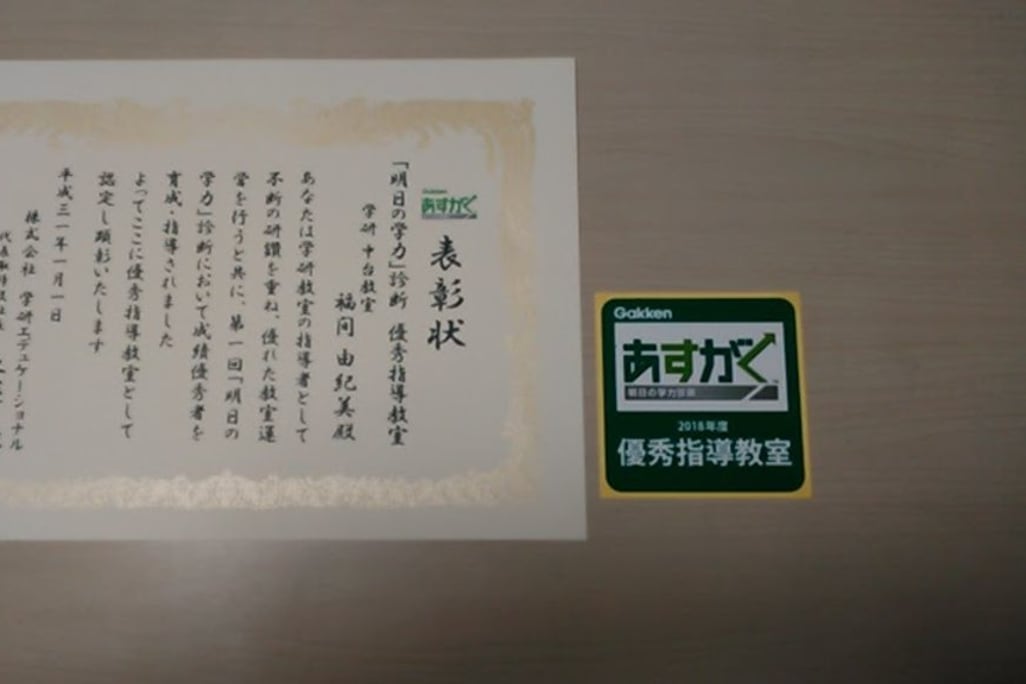 Gakken
あすがく
表彰状
「明日の学力」診断 優秀指導教室
学研 中台教室
福间 由紀美殿
あなたは学研教室の指導者として
不断の研鑽を重ね、優れた教室運
営を行うと共に、第一回「明日の
学力」診断において成績優秀者を
育成・指導されました
よってここに優秀指導教室として
認定し顕彰いたします
平成三一年一月一日
株式会社 学研エデュケーショナル
代表取締役社長
Gakken
あすがく
明日の学力診断
2018年度
優秀指導教室